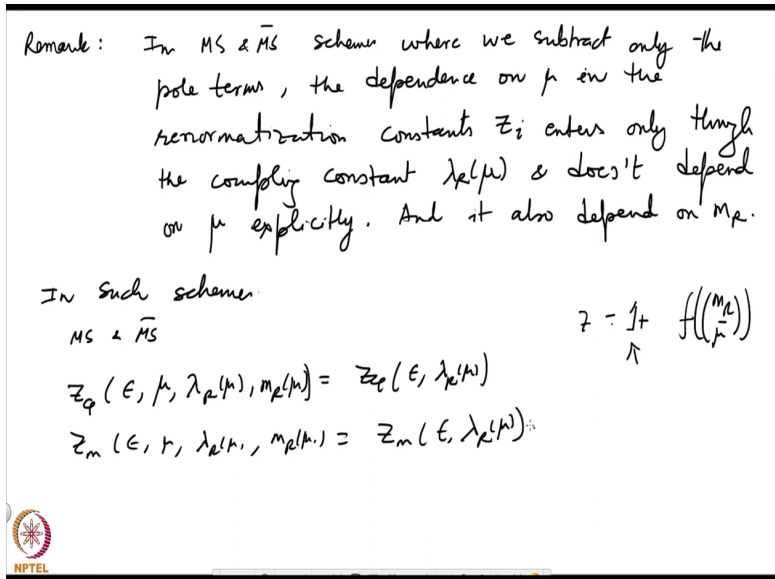 Remark : In MS & M̅S̅ schemes where we subtract only the
pole terms, the dependence on μ in the
renormatization constants Z_i enters only though
the couplig constant λ_R(μ) & does't depend
on μ explicitly. And it also depend on m_R.
In such schemes
MS & M̅S̅
Z = 1 + f((m_R/μ))
↑
Z_φ (ϵ, μ, λ_R(μ), m_R(μ)) = Z_φ (ϵ, λ_R(μ))
Z_m (ϵ, μ, λ_R(μ), m_R(μ)) = Z_m (ϵ, λ_R(μ))
NPTEL